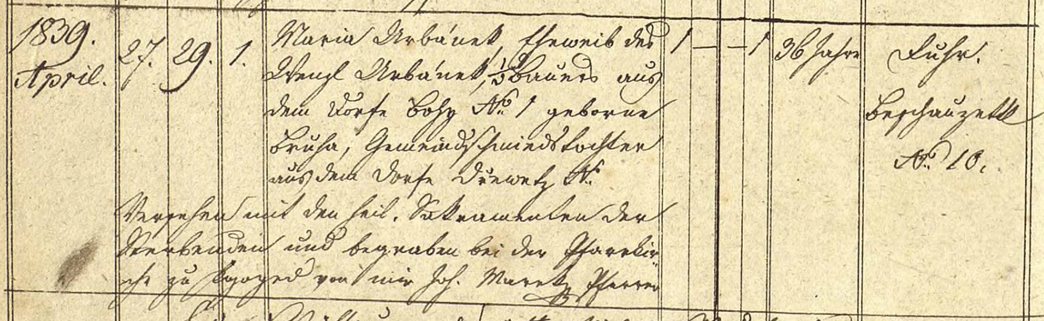 1839.
April.
27. 29. 1.
Maria Urbánek, Eheweib des
Wenzl Urbánek, Bauers aus
dem Dorfe No 1 geborne
Bruha, Gemeindschmiedstochter
aus dem Dorfe No
Versehen mit den heil. Sakramenten der
Sterbenden und begraben bei der Pfarrkir-
che zu von mir Joh. Pfarrer
1 — — 1
36 Jahre
Ruhr.
Beschauzettl
No 10.